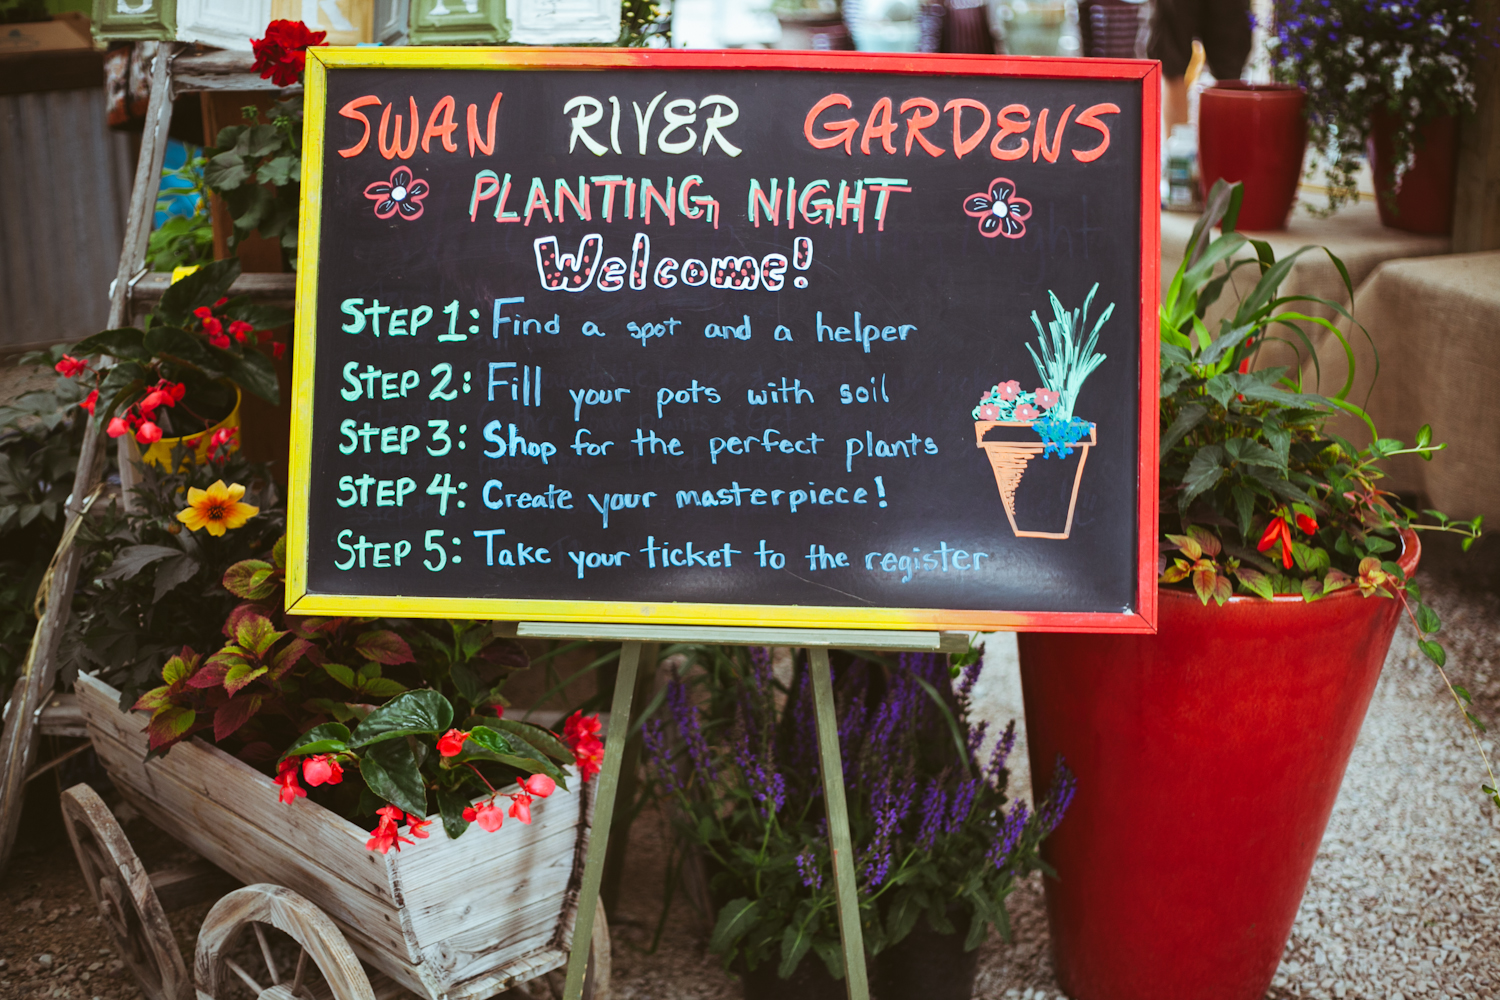 SWAN RIVER GARDENS
PLANTING NIGHT
Welcome!
STEP 1: Find a spot and a helper
STEP 2: Fill your pots with soil
STEP 3: Shop for the perfect plants
STEP 4: Create your masterpiece!
STEP 5: Take your ticket to the register